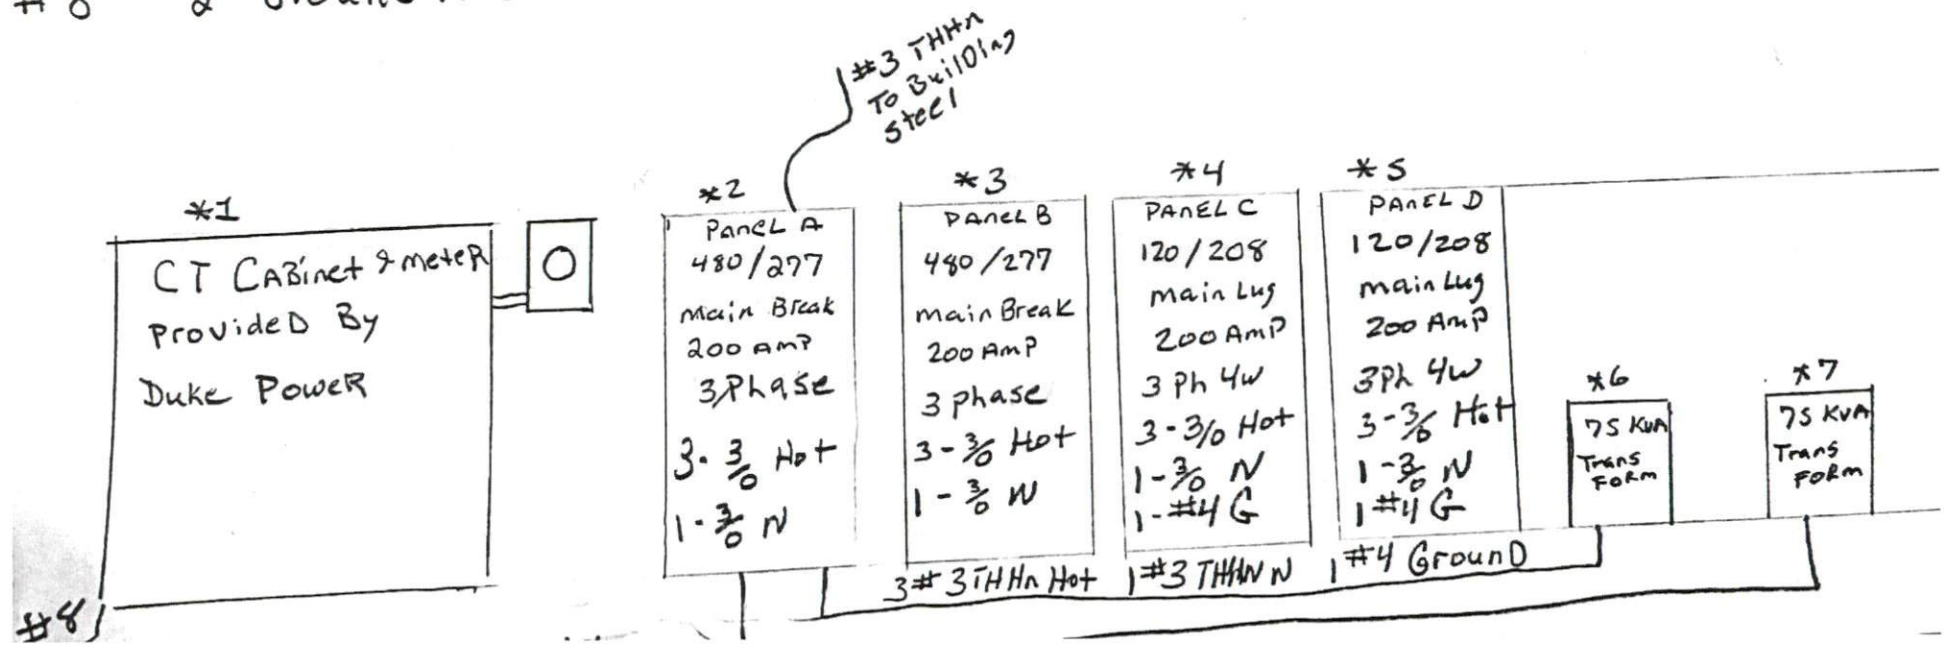 #3 THHn
To BuilDing
Steel
*1
CT CABinet & meteR
ProvideD By
Duke PoweR
*2
PaneL A
480/277
Main Break
200 AmP
3 Phase
3 - 3/0 Hot
1 - 3/0 N
*3
PAneL B
480/277
main Break
200 AmP
3 phase
3 - 3/0 Hot
1 - 3/0 N
*4
PAnEL C
120/208
main Lug
200 AmP
3 Ph 4w
3 - 3/0 Hot
1 - 3/0 N
1 - #4 G
*5
PAnEL D
120/208
main Lug
200 AmP
3Ph 4w
3 - 3/0 Hot
1 - 3/0 N
1 #4 G
*6
75 KVA
Trans
FoRm
*7
75 KVA
Trans
FoRm
3 # 3 THHn Hot 1 #3 THHN N 1 #4 GrounD
#8